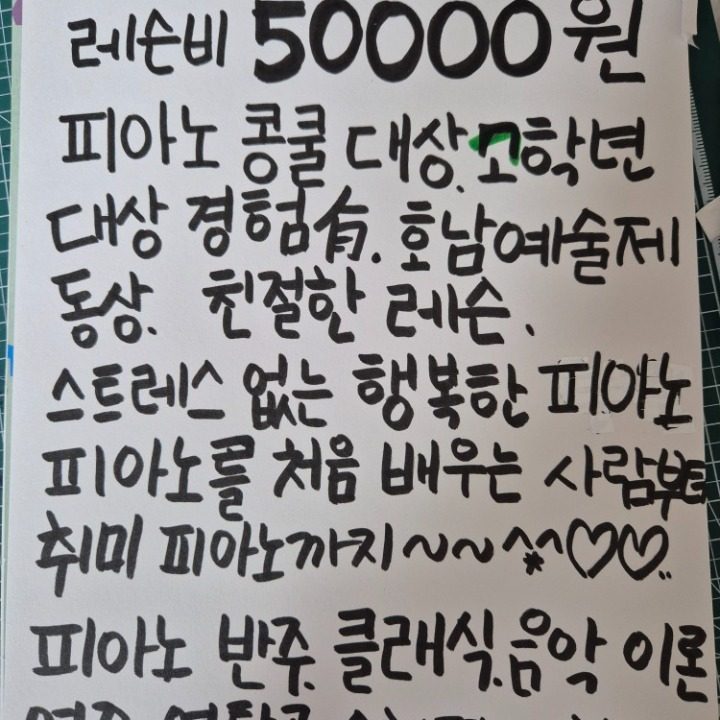 레슨비 50000원
피아노 콩쿨 대상. 고학년
대상 경험有. 호남예술제
동상. 친절한 레슨.
스트레스 없는 행복한 피아노
피아노를 처음 배우는 사람부터
취미 피아노까지~~^*^♡♡..
피아노 반주. 클래식. 음악 이론